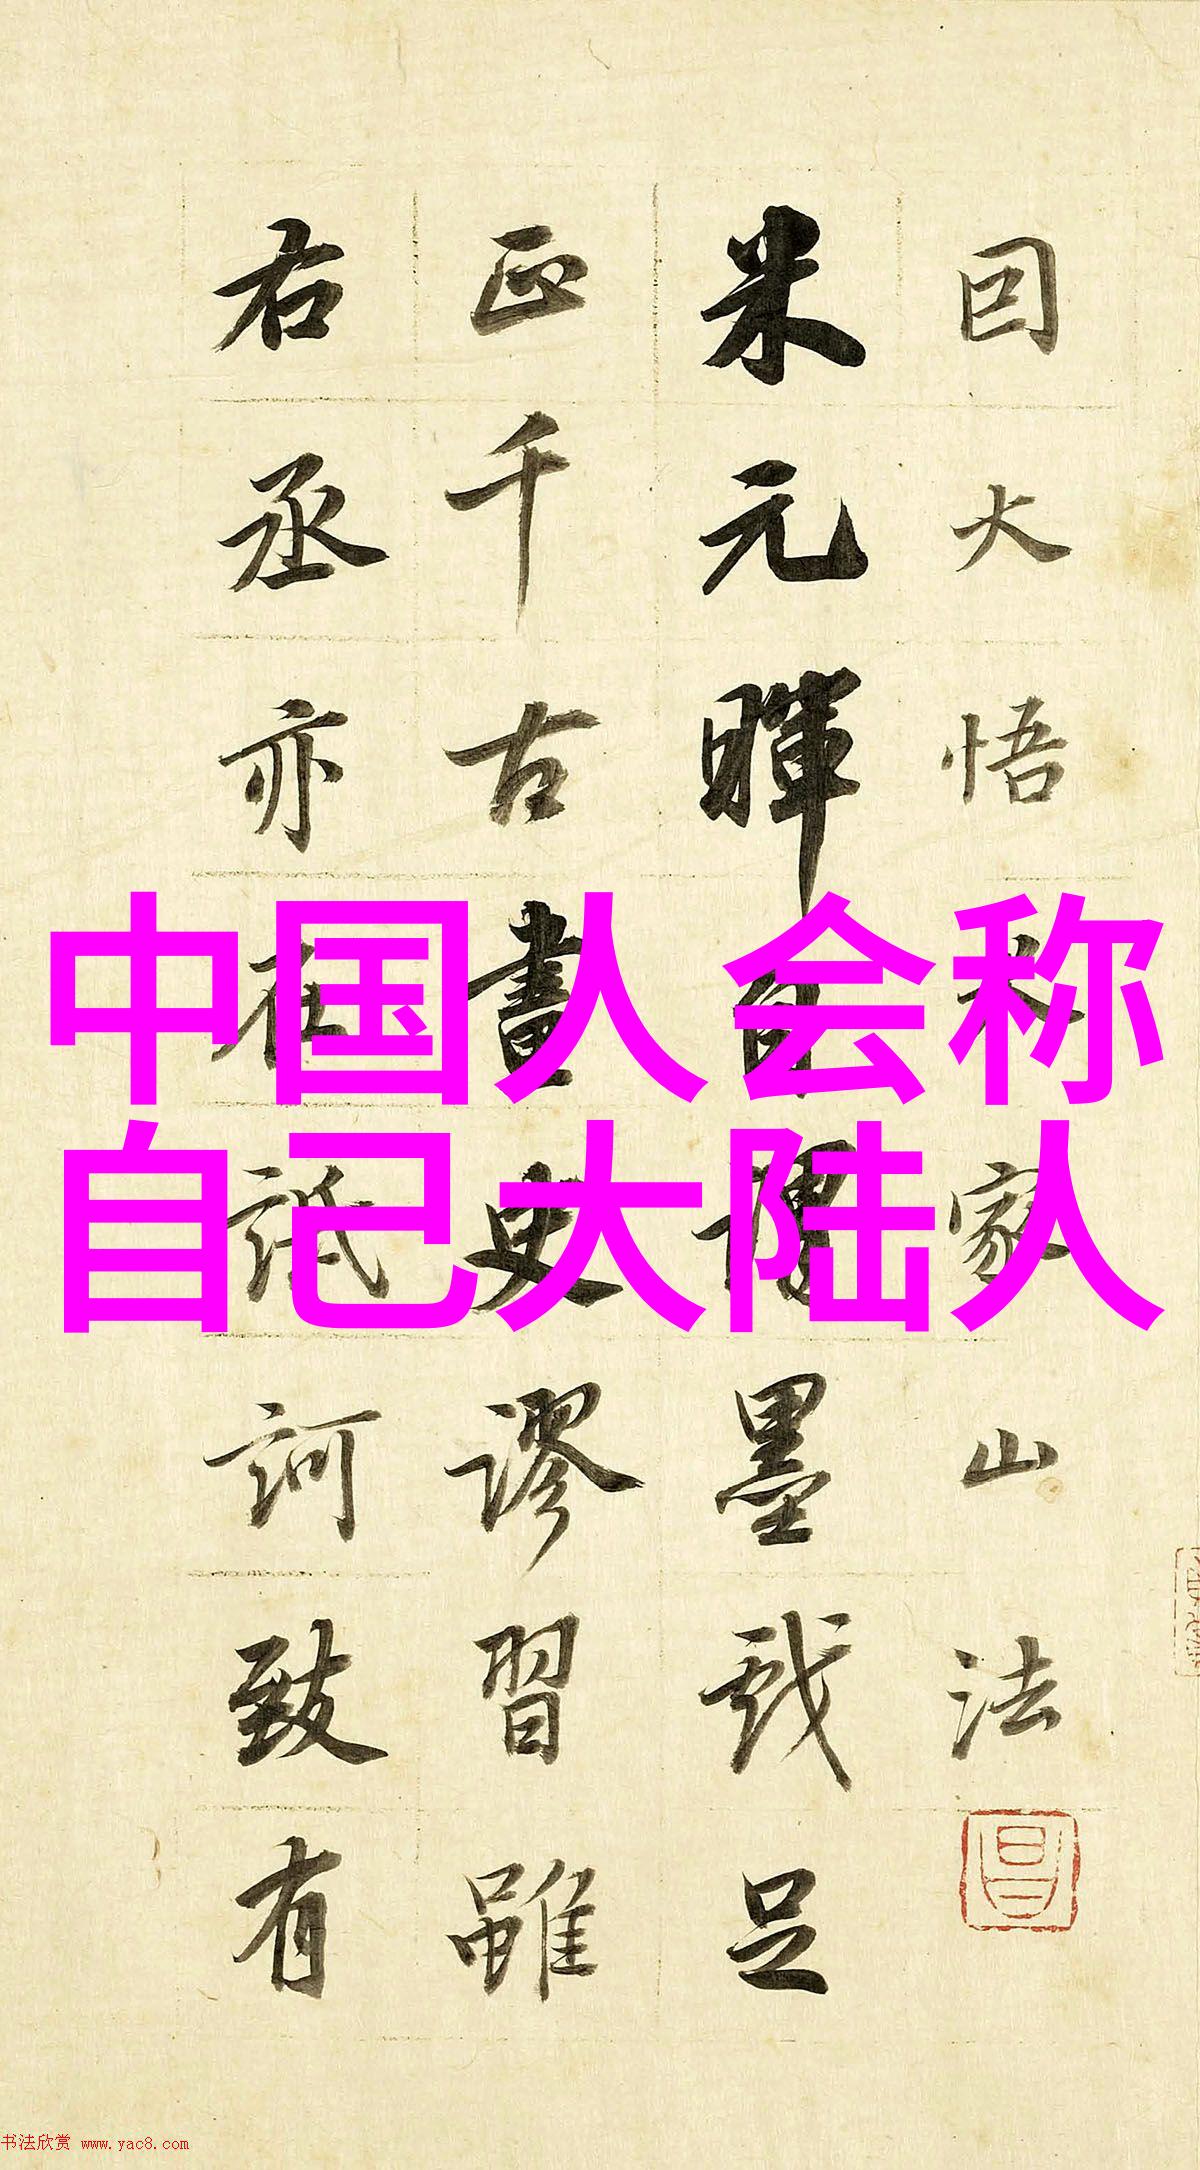 囙大悟米家山法
米元暉自謂墨戲足
正千古畫史謬習雖
右丞亦在詆訶致有
中国人会称
自己大陆人
书法欣赏 www.yac8.com